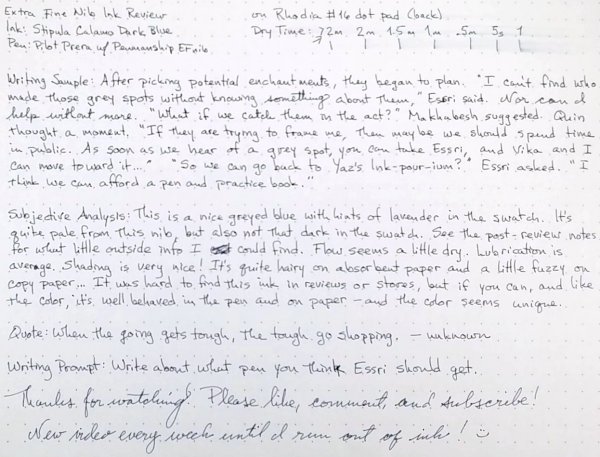 Extra Fine Nib Ink Review on Rhodia #16 dot pad (back)
Ink: Stipula Calamo Dark Blue Dry Time: >2m 2m 1.5m 1m .5m 5s 1
Pen: Pilot Prera w/ Penmanship EF nib
Writing Sample: After picking potential enchantments, they began to plan. "I can't find who
made those grey spots without knowing something about them," Essri said. Nor can I
help without more. "What if we catch them in the act?" Makhabesh suggested. Quin
thought a moment. "If they are trying to frame me, then maybe we should spend time
in public. As soon as we hear of a grey spot, you can take Essri, and Vika and I
can move toward it..." "So we can go back to Yaz's Ink-pour-ium?" Essri asked. "I
think we can afford a pen and practice book."
Subjective Analysis: This is a nice greyed blue with hints of lavender in the swatch. It's
quite pale from this nib, but also not that dark in the swatch. See the post-review notes
for what little outside info I could find. Flow seems a little dry. Lubrication is
average. Shading is very nice! It's quite hairy on absorbent paper and a little fuzzy on
copy paper... It was hard to find this ink in reviews or stores, but if you can, and like
the color, it's well behaved in the pen and on paper - and the color seems unique.
Quote: When the going gets tough, the tough go shopping. - unknown
Writing Prompt: Write about what pen you think Essri should get.
Thanks for watching! Please like, comment, and subscribe!
New video every week until I run out of ink! :)